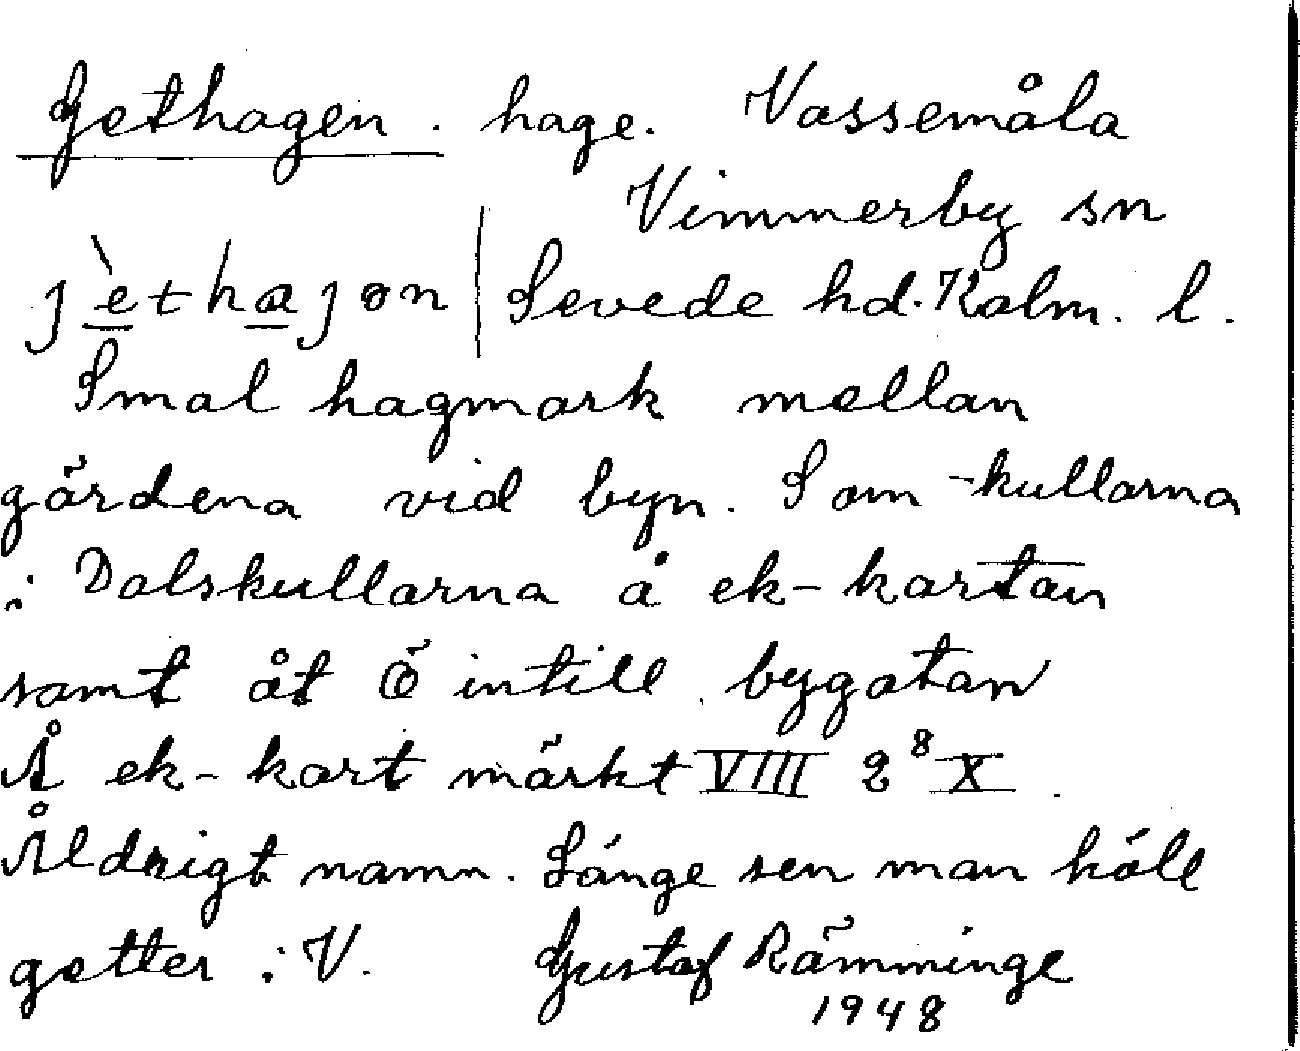 Gethagen. hage. Vassemåla
Vimmerby sn
jèthajon | Sevede hd. Kalm. l.
Smal hagmark mellan
gärdena vid byn. Som -kullarna
i Dalskullarna å ek-kartan
samt åt Ö intill bygatan
Å ek-kart märkt VIII 2⁸ X.
Åldrigt namn. Länge sen man höll
getter i V. Gustaf Rämminge
1948